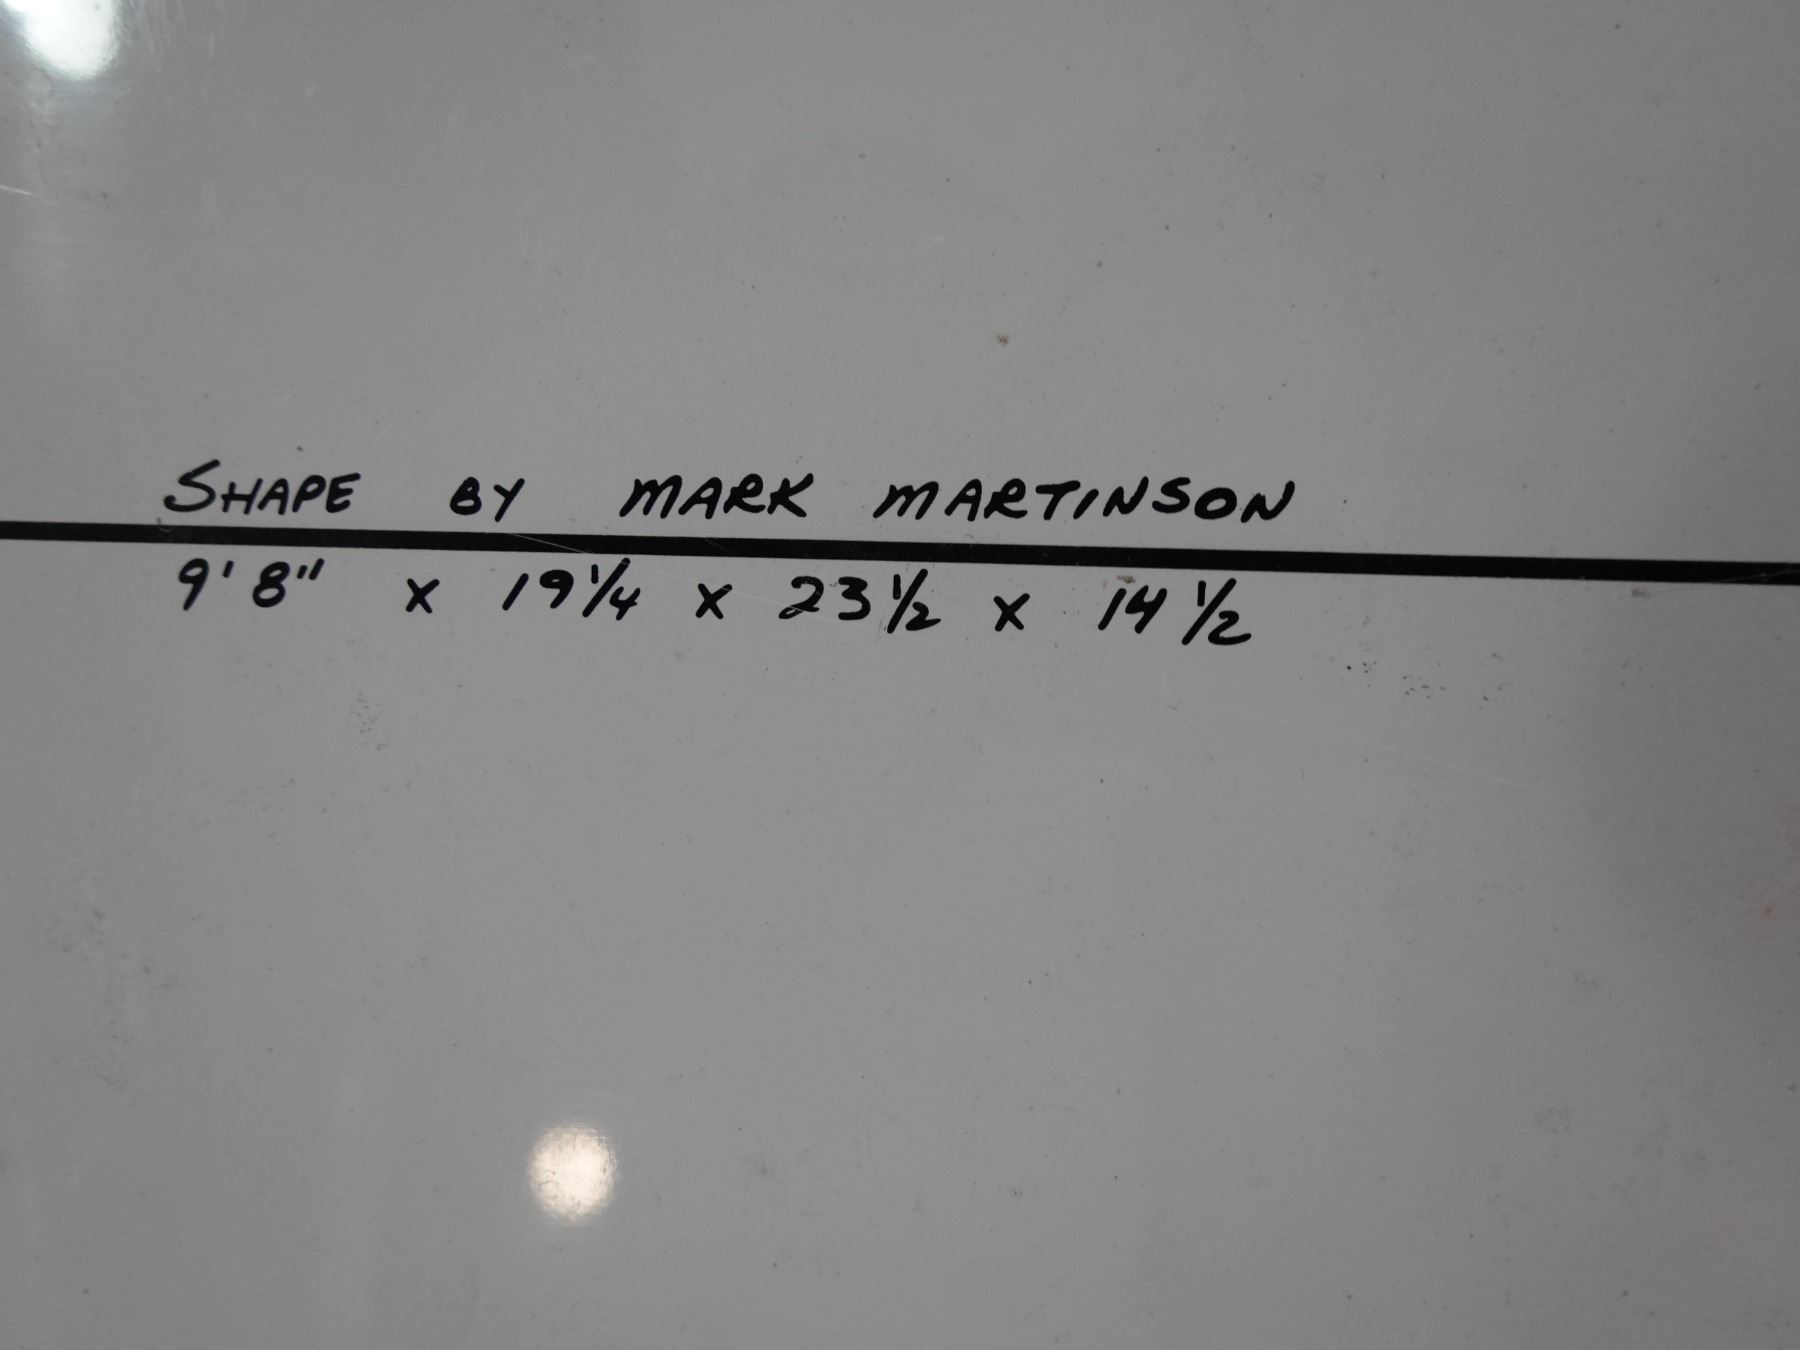 SHAPE BY MARK MARTINSON
9'8" x 19 1/4 x 23 1/2 x 14 1/2